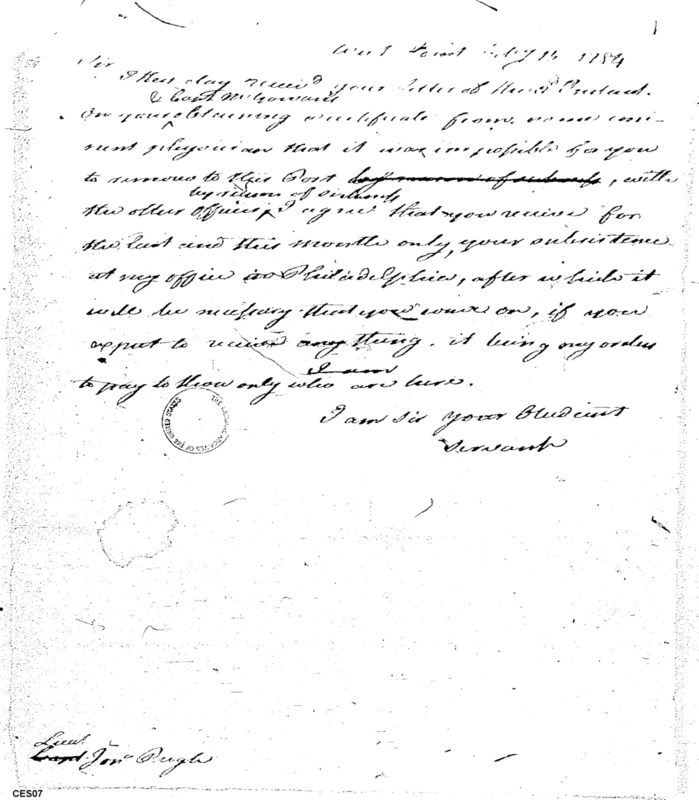 West Point July 14 1784
Sir
I this day receiv'd your letter of the Instant.
& Capt McGowans
On your obtaining a certificate from some emi-
nent physician that it was impossible for you
to remove to this Post by reason of sickness, with
by reason of sickness
the other officers, I agree that you receive for
the last and this months only, your subsistence
at my office in Philadelphia, after which it
will be necessary that you come on, if you
expect to receive any thing. it being my orders
I am
to pay to those only who are here.
I am Sir your Obedient
Servant
THE NATIONAL ARCHIVES OF THE UNITED STATES
Lieut
Capt Jona Pugh
CES07